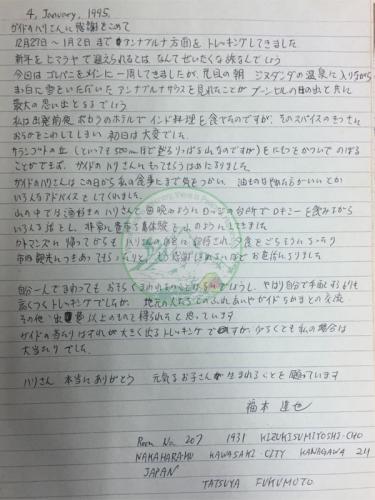 4, January, 1995,
ガイドのハリさんに感謝をこめて
12月27日〜1月2日までアンナプルナ方面をトレッキングしてきました
新年をヒマラヤで迎えられるとは なんてぜいたくな旅なんでしょう
今回はゴレパニをメインに一周してきましたが、尾目の朝 ジヌダンダの温泉に入りながら
まっ白に雪をいただいたアンナプルナサウスを見れたことが プーンヒルの日の出と共に
最大の思い出となるでしょう
私は出発前夜 ポカラのホテルでインド料理を食べたのですが、そのスパイスのきつさに
おなかをこわしてしまい 初日は大変でした。
サランコットの丘 (といっても500m ほど登るりっぱな山なのですが) をにもつをかついでのぼる
ことができず、ガイドのハリさんにもってもらうはめになりました
ガイドのハリさんはこの日から私の食事にまで気をつかい、油ものはやめた方がいいとか
いろんなアドバイスをしてくれました
山の中では酒好きのハリさんと毎晩のようにロッジの台所でロキシーを飲みながら
いろんな話をし、非常に貴重な体験をしてきました
カトマンズに帰ってからもハリさんの自宅に招待され 夕食をごちそうになったり
市内観光につきあってもらったりと もう感謝しきれないほどお世話になりました
自分一人でまわっても おそらくまわれないことはないでしょうし、やはり自分で手配するよりも
高くつくトレッキングでしたが、地元の人たちとのふれあいやガイドたちとの交流
その他 出費以上のものを得られたと思っています
ガイドの当たりはずれが大きく出るトレッキングですが、少なくとも私の場合は
大当たりでした。
ハリさん 本当にありがとう 元気なお子さんが生まれることを願っています
福本 達也
Room No. 207 1931 KIZUKISUMIYOSHI-CHO
NAKAHARA-KU KAWASAKI-CITY KANAGAWA 211
JAPAN
TATSUYA FUKUMOTO